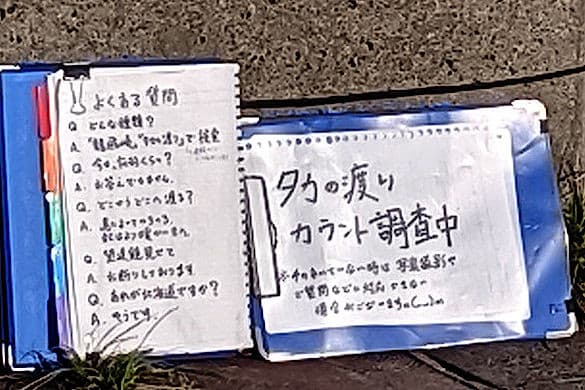 よくある質問
Q. どんな種類?
A. "龍飛崎" "タカの渡り" で検索
Q. 今日、何羽くらい?
A. お答えできません。
Q. どこからどこへ渡る?
A. 鳥によってちがう。
Q. 望遠鏡見せて
A. お断りしております。
Q. あれが北海道ですか?
A. そうです。
タカの渡り
カウント調査中
写真撮影や
ご質問などに対応できない
場合がございますm(_ _)m